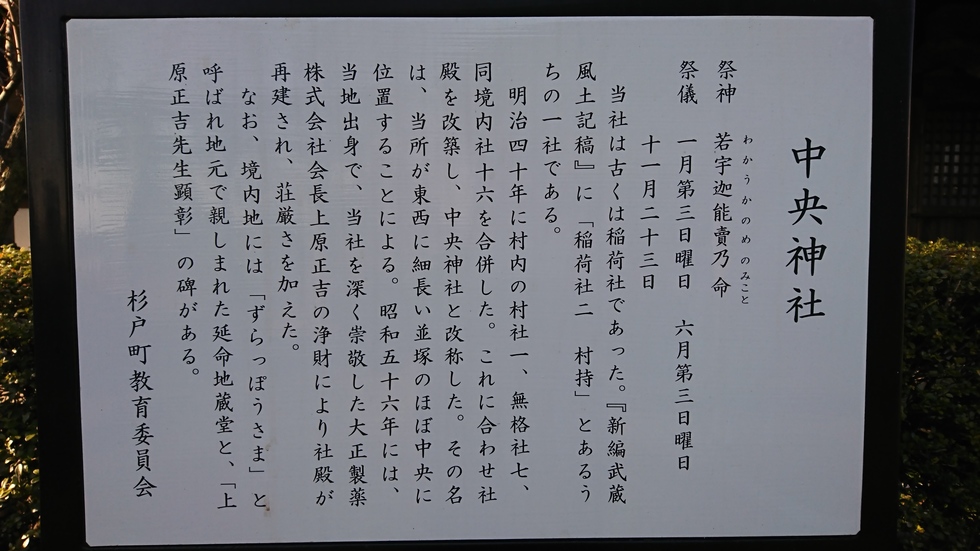 中央神社
祭神　若宇迦能賣乃命
わかうかのめのみこと
祭儀　一月第三日曜日　六月第三日曜日
十一月二十三日
当社は古くは稲荷社であった。『新編武蔵
風土記稿』に「稲荷社二　村持」とあるう
ちの一社である。
明治四十年に村内の村社一、無格社七、
同境内社十六を合併した。これに合わせ社
殿を改築し、中央神社と改称した。その名
は、当所が東西に細長い並塚のほぼ中央に
位置することによる。昭和五十六年には、
当地出身で、当社を深く崇敬した大正製薬
株式会社会長上原正吉の浄財により社殿が
再建され、荘厳さを加えた。
なお、境内地には「ずらっぽうさま」と
呼ばれ地元で親しまれた延命地蔵堂と、「上
原正吉先生顕彰」の碑がある。
杉戸町教育委員会